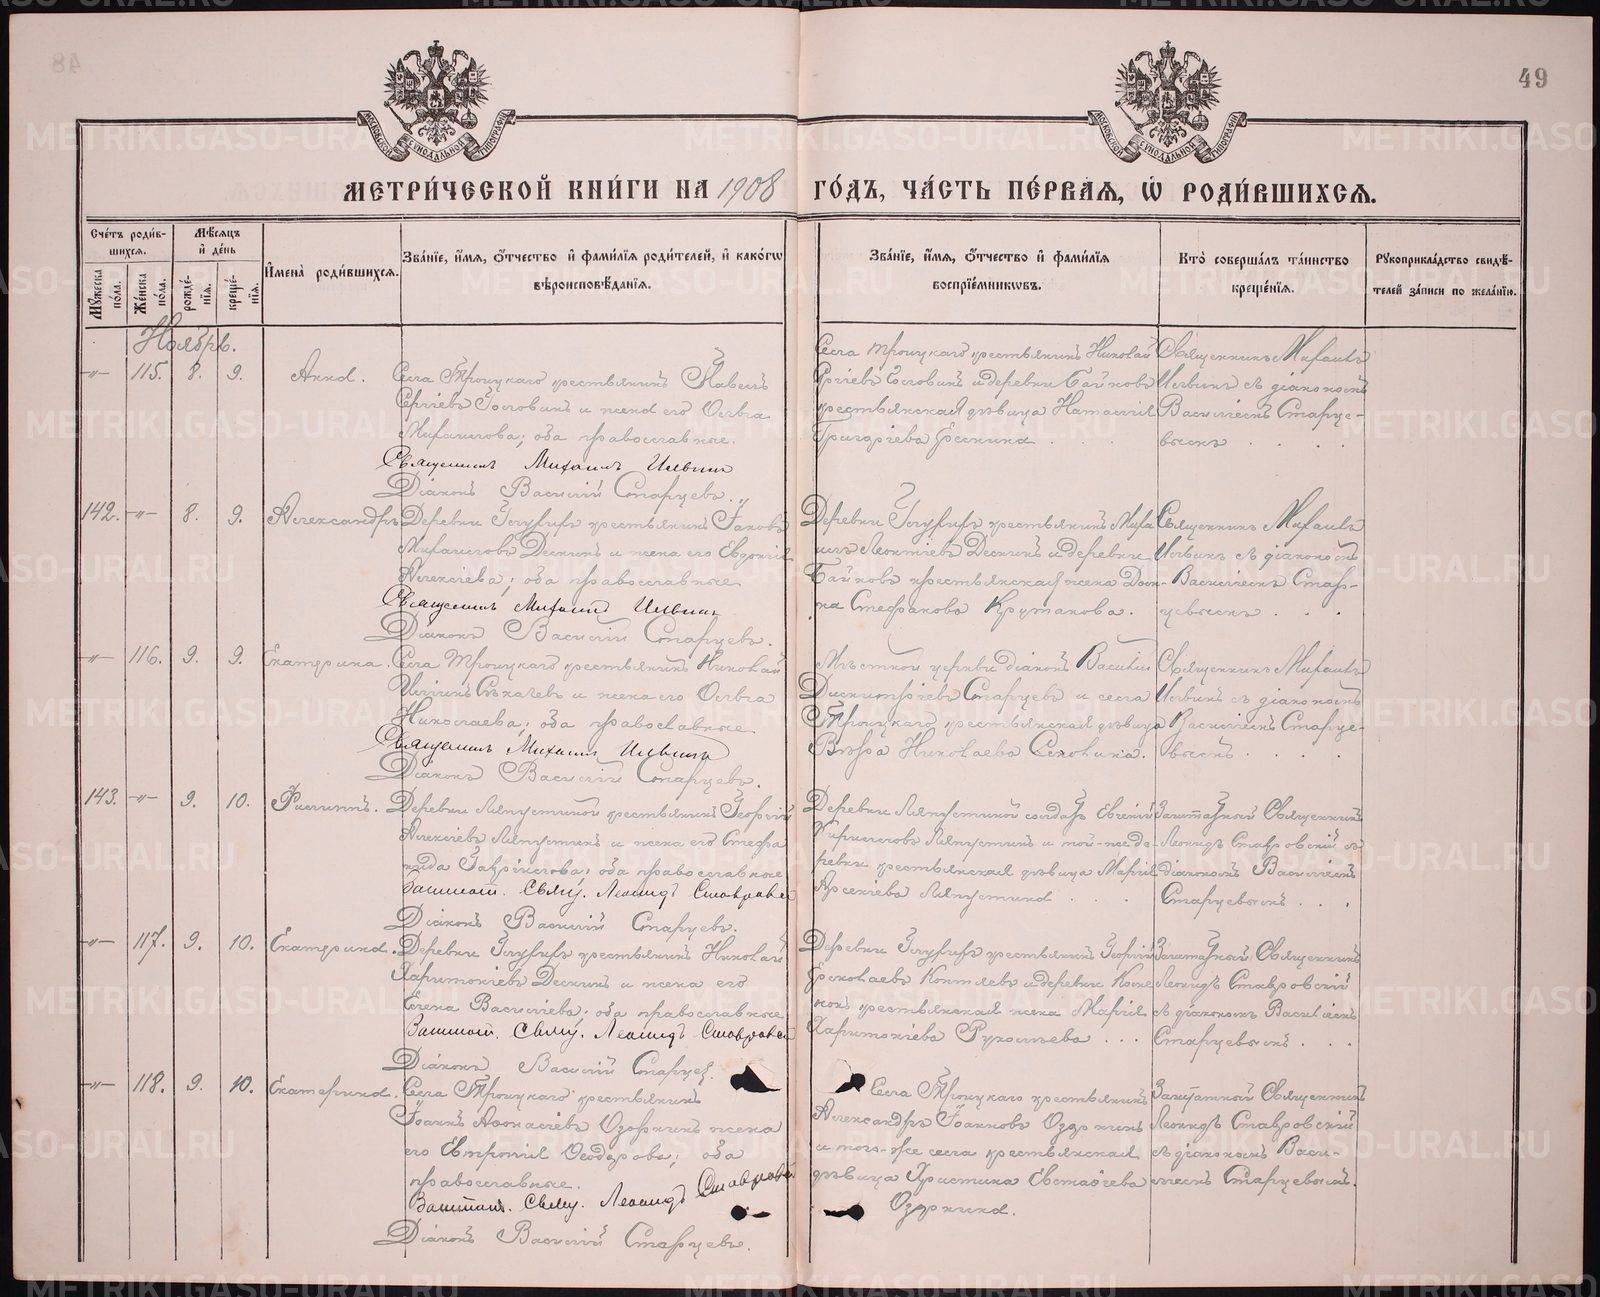 49
МЕТРИ́ЧЕСКОЙ КНИ́ГИ НА 1908 ГО́ДЪ, ЧА́СТЬ ПЕ́РВАЯ, Ѡ РОДИ́ВШИХСЯ.
Сче́тъ роди́вшихся.
Мѣ́сяцъ и де́нь
Мꙋ́жеска по́ла.
Же́нска по́ла.
рожде́нїя.
креще́нїя.
И҆мена̀ роди́вшихся.
Зва́нїе, и҆́мя, ѻ҆́тчество и҆ фами́лїя роди́телей, и҆ како́гѡ вѣроисповѣ́данїя.
Зва́нїе, и҆́мя, ѻ҆́тчество и҆ фами́лїя воспрїе́мникѡвъ.
Кто̀ соверша́лъ та́инство креще́нїя.
Рꙋкоприкла́дство свидѣ́телей за́писи по жела́нїю.
Ноябрь.
-"- 115. 8. 9. Анна.
Села Троицкаго крестьянинъ Павелъ
Сергіевъ и жена его Ольга
Михаилова; оба православные.
Священникъ Михаилъ Ильинъ
Діаконъ Василій Старцевъ.
Села Троицкаго крестьянинъ Николай
Сергіевъ и деревни Байновой
крестьянская дѣвица Наталія
Григоріева
Священникъ Михаилъ
Ильинъ съ діакономъ
Василіемъ Старце-
вымъ . . .
142. -"- 8. 9. Александръ
Деревни крестьянинъ Іаковъ
Михаиловъ Деминъ и жена его Евдокія
Алексіева; оба православные
Священникъ Михаилъ Ильинъ
Діаконъ Василій Старцевъ.
Деревни крестьянинъ Миха
илъ Леонтіевъ Деминъ и деревни
крестьянская жена Дом-
на Стефанова Крутакова.
Священникъ Михаилъ
Ильинъ съ діакономъ
Василіемъ Стар-
цевымъ . . .
-"- 116. 9. 9. Екатерина.
Села Троицкаго крестьянинъ Николай
и жена его Ольга
Николаева; оба православные
Священникъ Михаилъ Ильинъ
Діаконъ Василій Старцевъ.
Мѣстной церкви діаконъ Василій
Димитріевъ Старцевъ и села
Троицкаго крестьянская дѣвица
Вѣра Николаева
Священникъ Михаилъ
Ильинъ съ діакономъ
Василіемъ Старце-
вымъ . . .
143. -"- 9. 10. Филиппъ.
Деревни Ляпустиной крестьянинъ Георгій
Алексіевъ Ляпустинъ и жена его Стефа
нида Гавріилова; оба православные
Заштат. Свящ. Леонидъ Ставровскій
Діаконъ Василій Старцевъ.
Деревни Ляпустиной солдатъ Евгеній
Кирилловъ Ляпустинъ и той-же де-
ревни крестьянская дѣвица Марія
Арсеніева Ляпустина . . .
Заштатный Священникъ
Леонидъ Ставровскій съ
діакономъ Василіемъ
Старцевымъ . . .
-"- 117. 9. 10. Екатерина.
Деревни крестьянинъ Николай
Харитоніевъ Деминъ и жена его
Елена Василіева; оба православные
Заштат. Свящ. Леонидъ Ставровскій
Діаконъ Василій Старцев.
Деревни крестьянинъ Георгій
Ермолаевъ Коптяевъ и деревни
крестьянская жена Марія
Харитоніева . . .
Заштатный Священникъ
Леонидъ Ставровскій
съ діакономъ Василіемъ
Старцевымъ . . .
-"- 118. 9. 10. Екатерина.
Села Троицкаго крестьянинъ
Іоаннъ Аѳанасіевъ Озорнинъ жена
его Евтропія Ѳеодорова; оба
православные.
Заштат. Свящ. Леонидъ Ставровскій
Діаконъ Василій Старцевъ.
Села Троицкаго крестьянинъ
Александръ Іоанновъ Озорнинъ
и того-же села крестьянская
дѣвица Христина Евстафіева
Озорнина.
Заштатной Священникъ
Леонидъ Ставровскій
съ діакономъ Васи-
ліемъ Старцевымъ.
METRIKI.GASO-URAL.RU